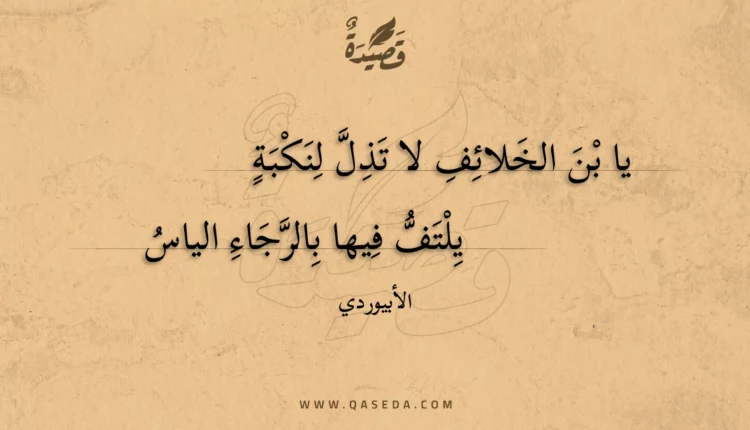 قَصِيْدَةٌ
يا بْنَ الخَلائِفِ لا تَذِلَّ لِنَكْبَةٍ
يِلْتَفُّ فِيها بِالرَّجَاءِ الياسُ
الأبيوردي
WWW.QASEDA.COM